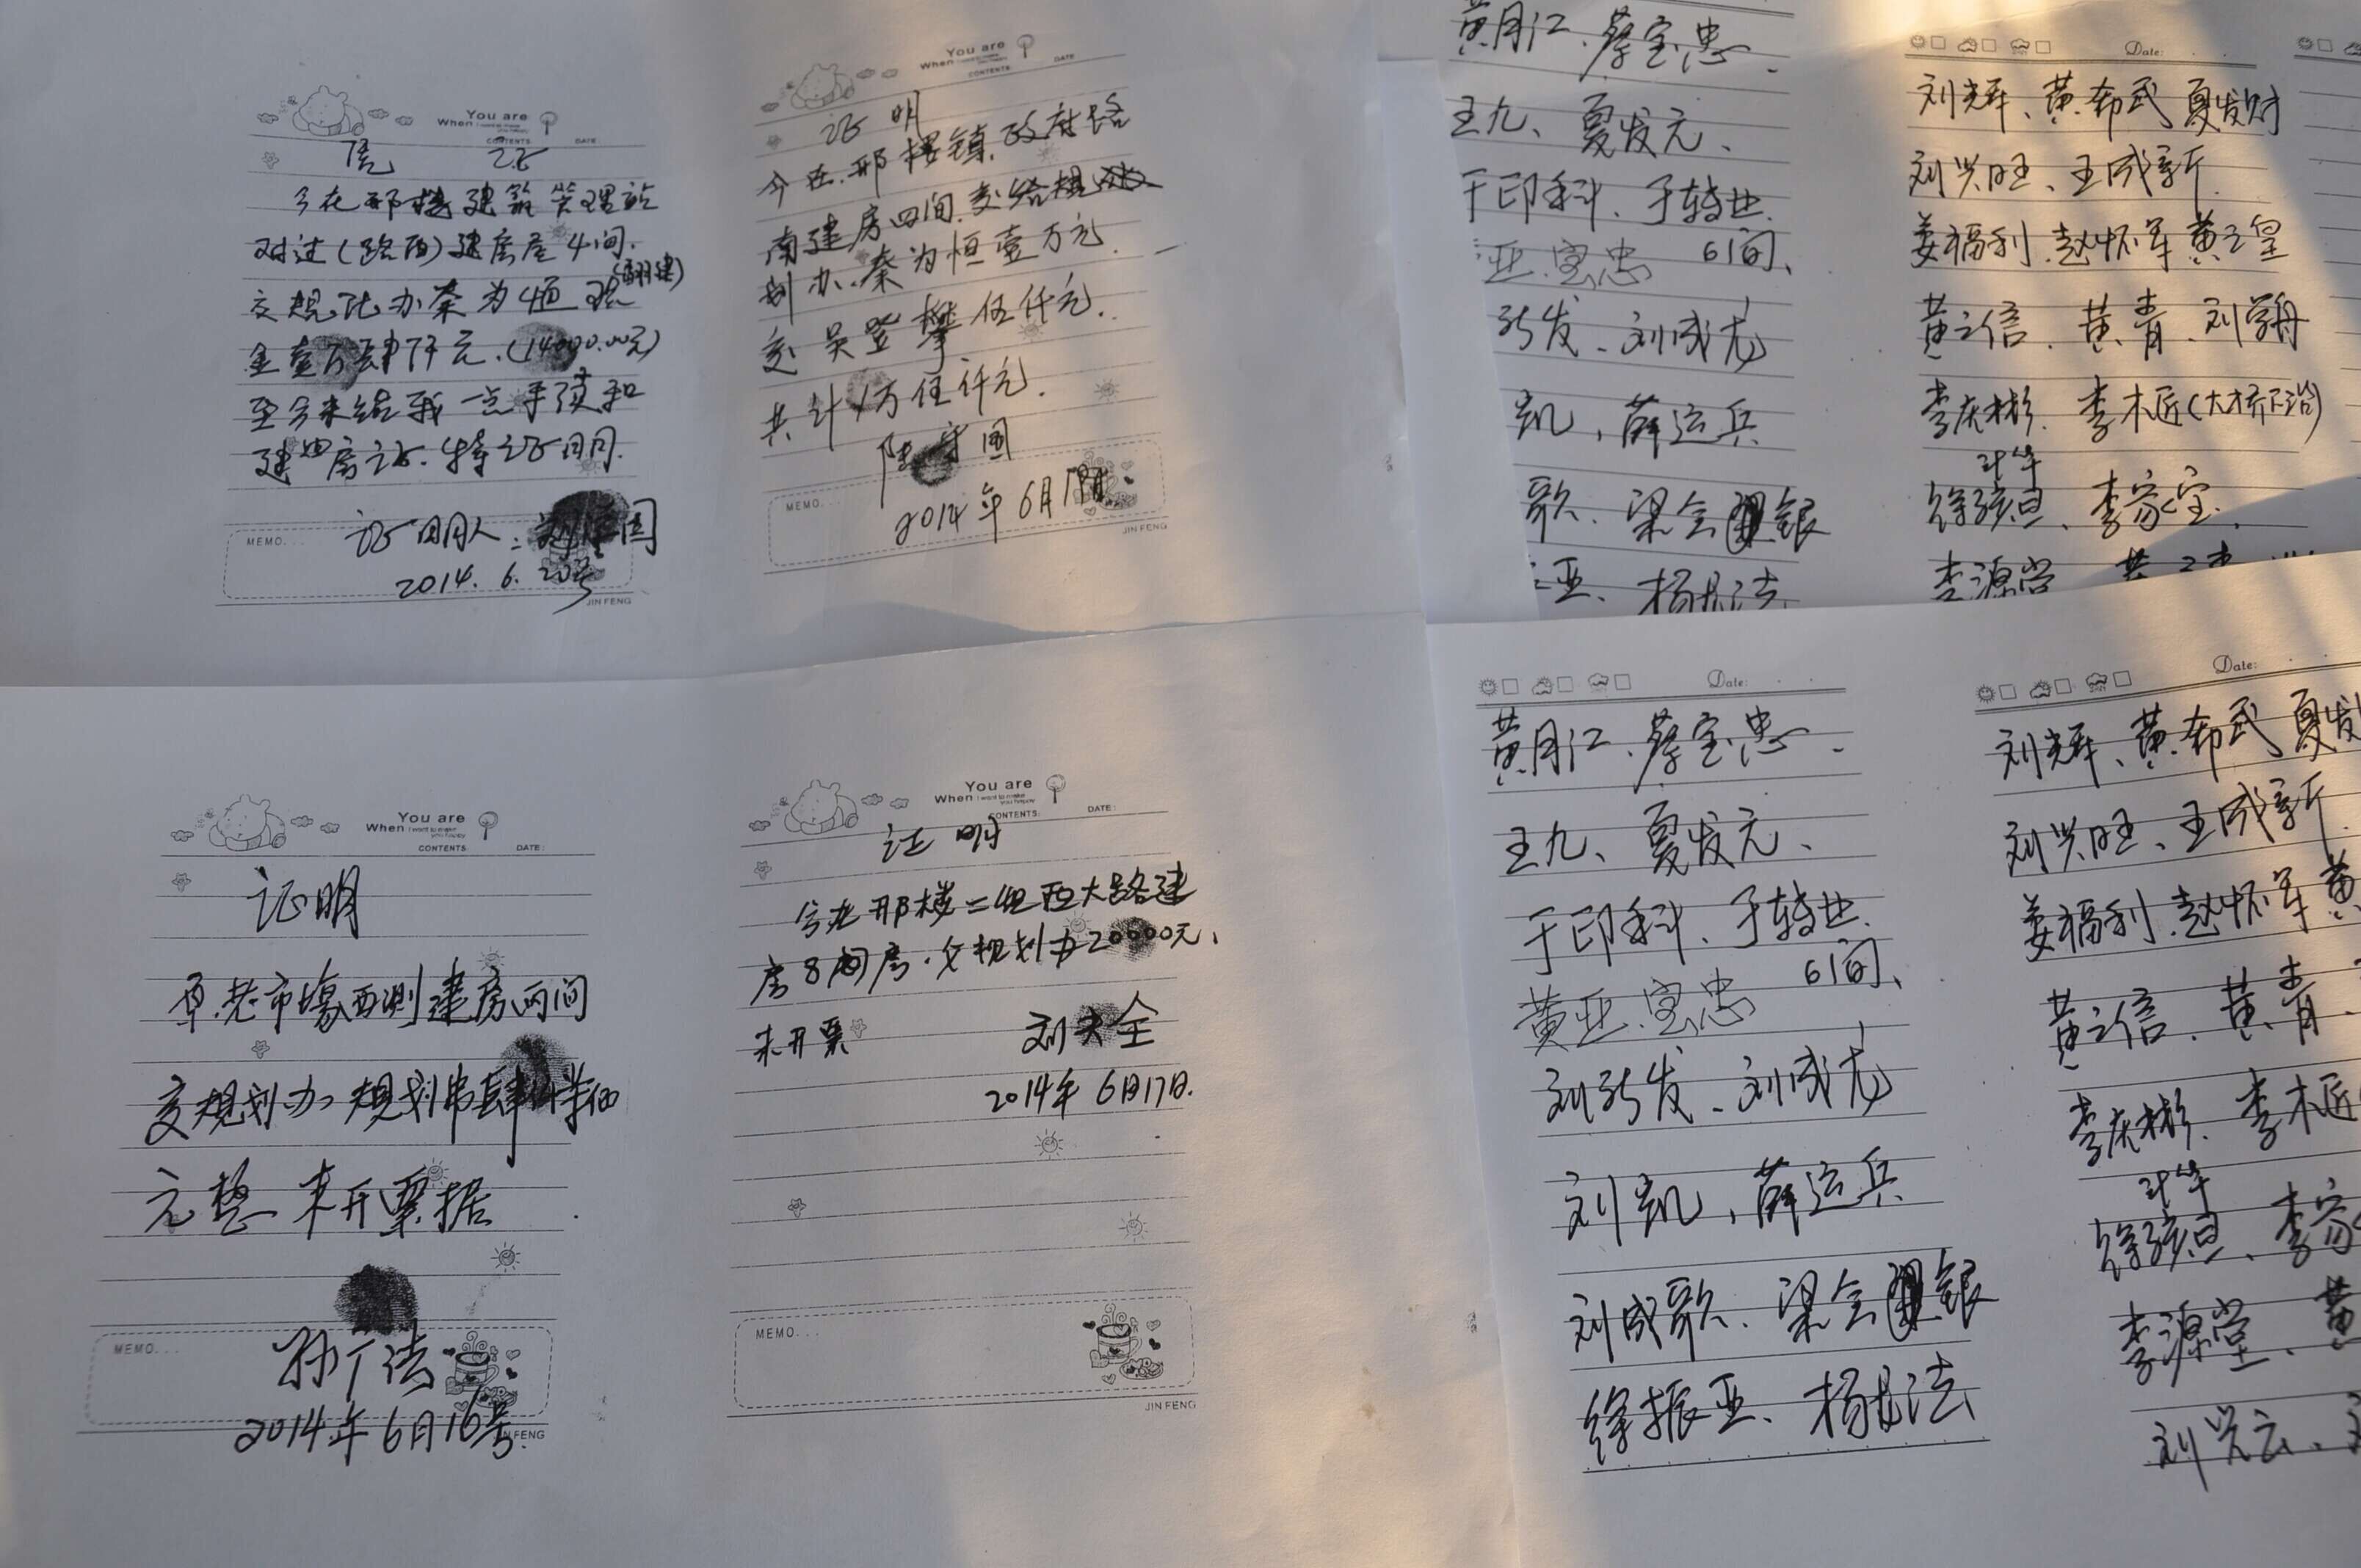 You are
When I want to make you happy
CONTENTS: DATE:
凭 证
今在邢楼建筑管理站
对过(路西)建房屋4间.
(翻建)
交规化办秦为恒现
金壹万肆仟元.(14000.00元)
至今未给我一点手续和
建房证.特证明.
证明人:刘 国
2014.6.20号
MEMO...
JIN FENG
You are
When I want to make you happy
CONTENTS: DATE:
证 明
今在邢楼镇政府路
南建房四间.交给规
划办.秦为恒壹万元.
交吴登攀伍仟元.
共计1万伍仟元.
陆守国
2014年6月 日
MEMO...
JIN FENG
黄月江、蔡宝忠、
王九、夏发元、
于印科、于转业.
亚.宝忠 6间、
新发、刘成龙
凯,薛运兵
歌、梁会 银
亚、杨 法
Date:
刘光辉、黄希武 夏发财
刘兴旺、王成新
姜福利.赵怀军 黄之皇
黄之信.黄青.刘学舟
李庆彬.李木匠(大桥下沿)
徐孩旦、李家宝.
李源堂
You are
When I want to make you happy
CONTENTS: DATE:
证明
原老市场西侧建房两间
交规划办规划 肆仟 佰
元整 未开票据
孙 法
2014年6月16号.
MEMO...
JIN FENG
You are
When I want to make you happy
CONTENTS: DATE:
证 明
今在邢楼二组西大路建
房8间房.交规划办20000元、
未开票 刘夫全
2014年6月17日.
MEMO...
JIN FENG
Date:
黄月江、蔡宝忠、
王九、夏发元、
于印科、于转业.
黄亚.宝忠 6间、
刘新发、刘成龙
刘凯,薛运兵
刘成歌、梁会 银
徐振亚、杨 法
Date:
刘光辉、黄希武 夏发
刘兴旺、王成新
姜福利.赵怀军 黄
黄之信.黄青.
李庆彬.李木匠
徐孩旦、李家
李源堂、黄
刘兴云、